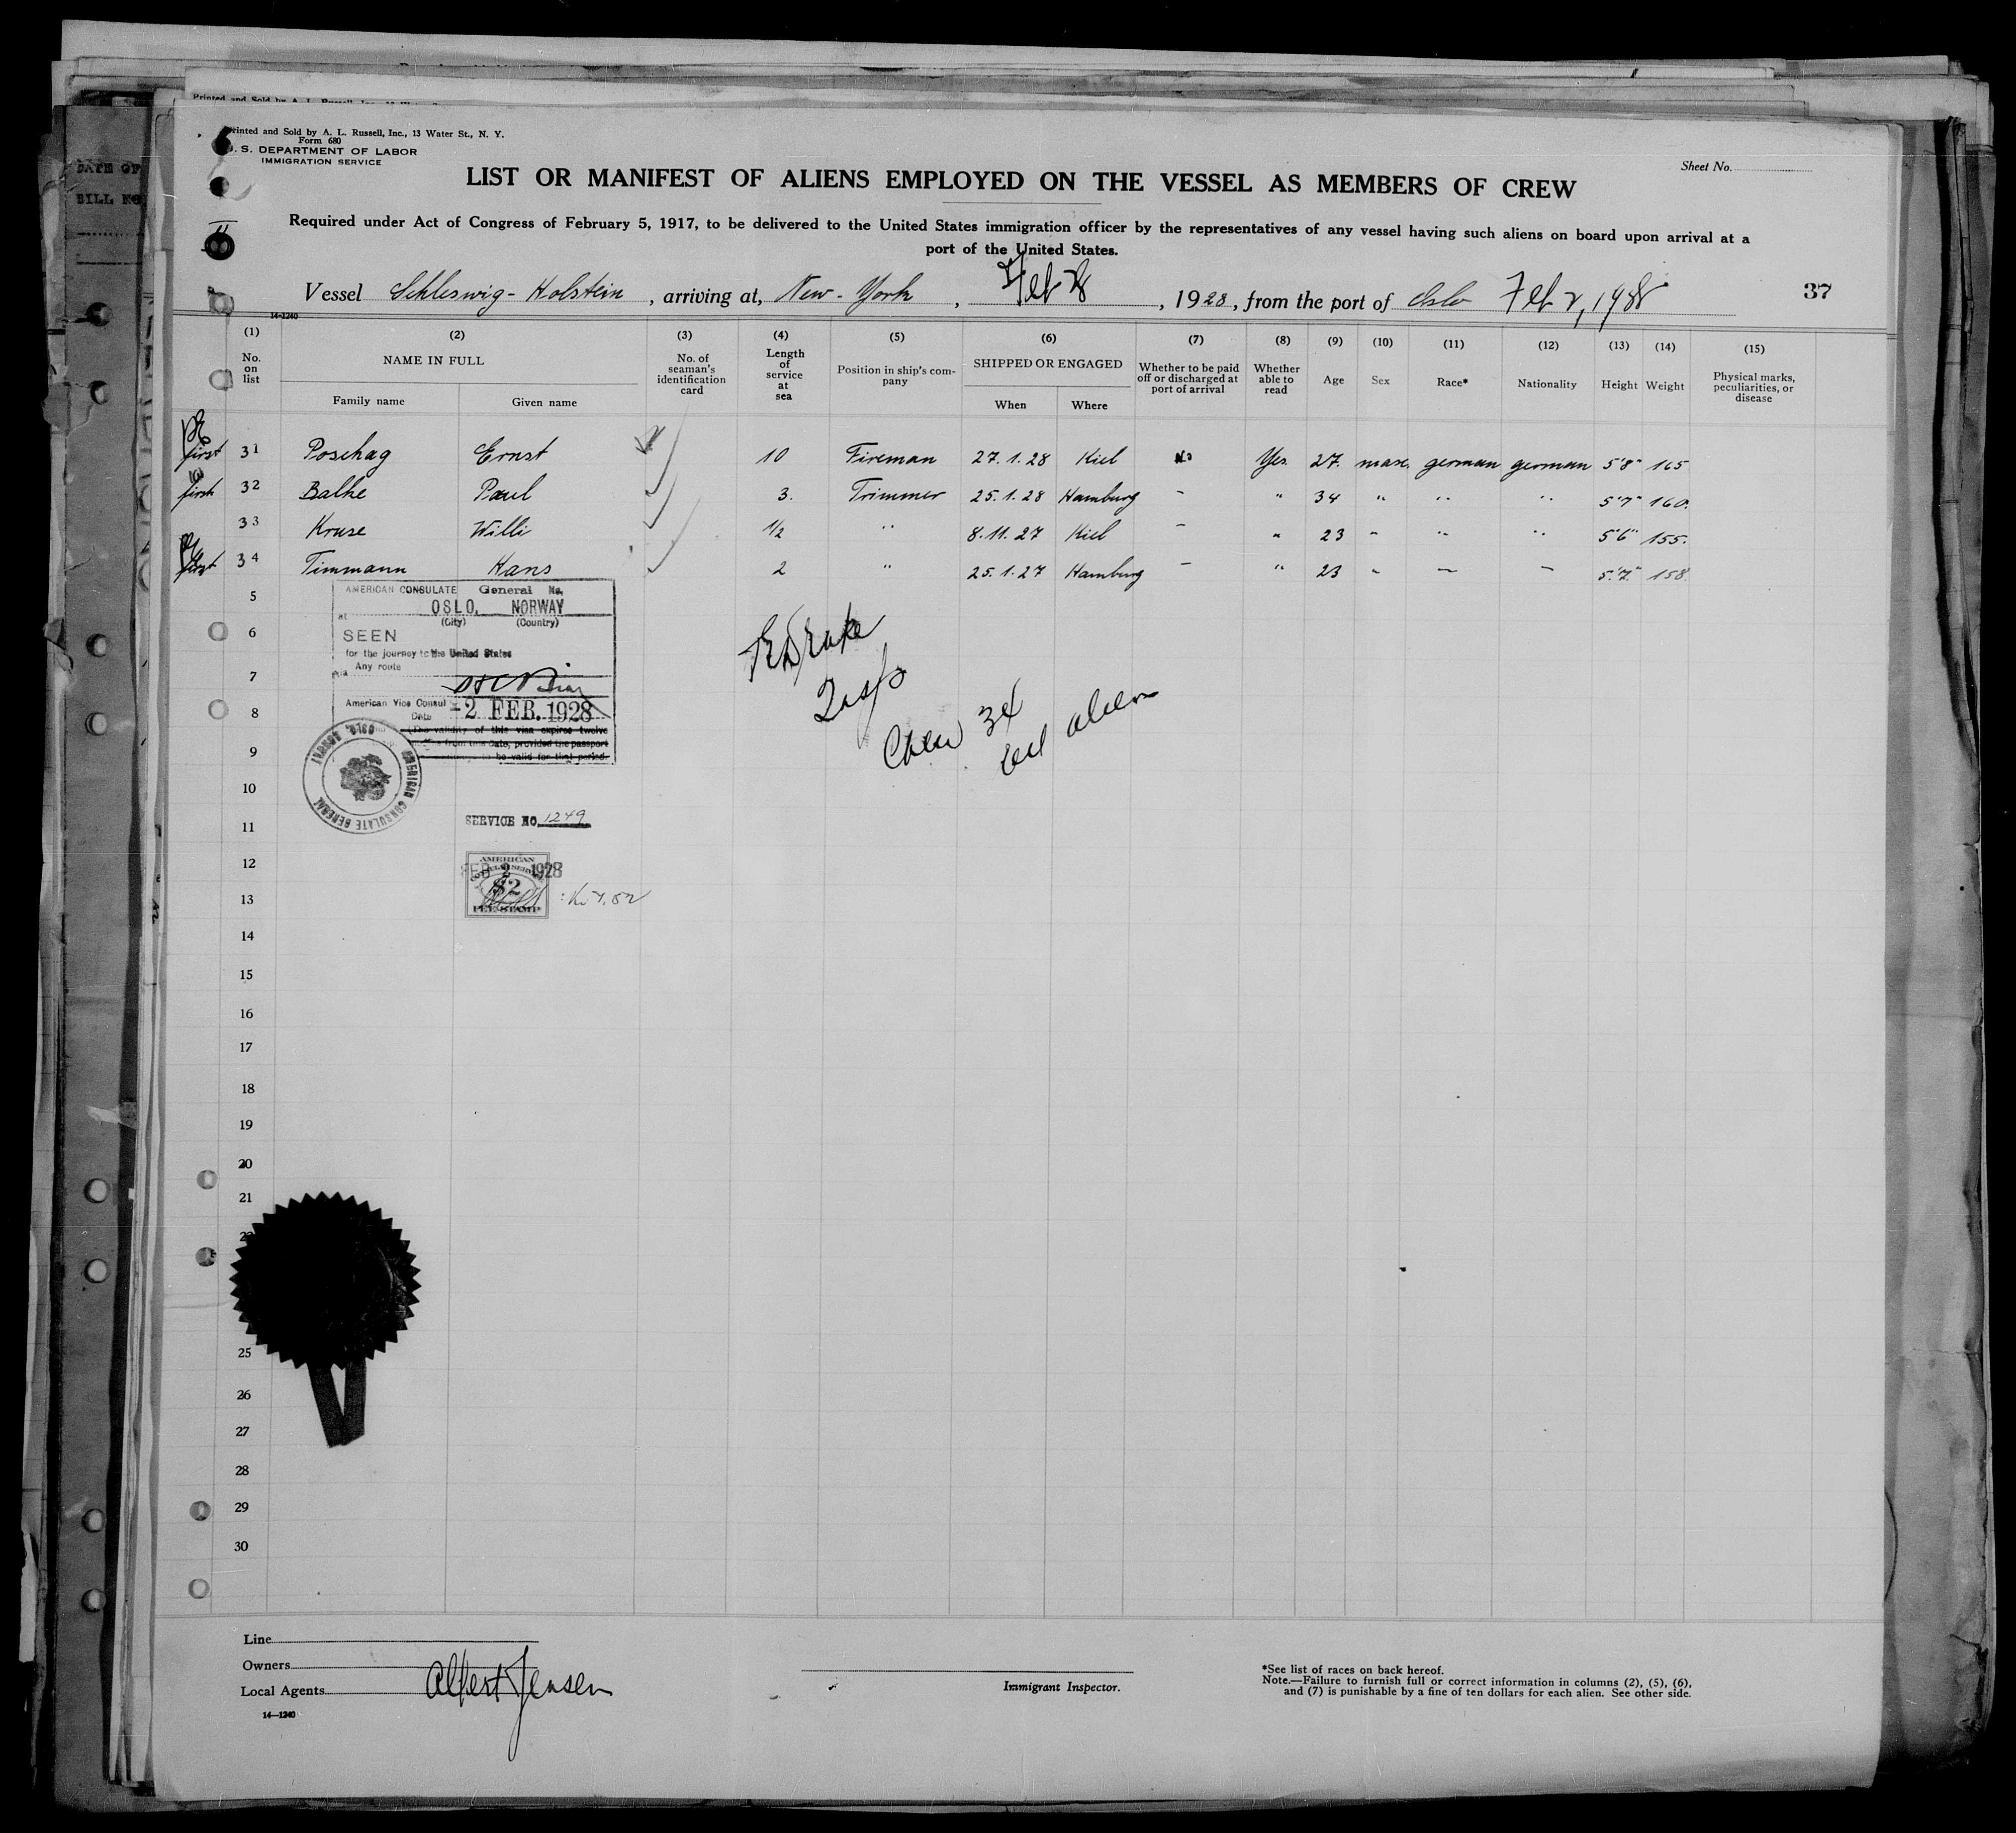 Printed and Sold by A. L. Russell, Inc., 13 Water St., N. Y.
Form 680
U. S. DEPARTMENT OF LABOR
IMMIGRATION SERVICE
Sheet No.
LIST OR MANIFEST OF ALIENS EMPLOYED ON THE VESSEL AS MEMBERS OF CREW
Required under Act of Congress of February 5, 1917, to be delivered to the United States immigration officer by the representatives of any vessel having such aliens on board upon arrival at a
port of the United States.
Vessel Schleswig-Holstein, arriving at, New-York, Feb, 1928, from the port of Oslo Feb 2, 1928
37
14-1240
(1) (2) (3) (4) (5) (6) (7) (8) (9) (10) (11) (12) (13) (14) (15)
No. on list
NAME IN FULL
Family name Given name
No. of seaman's identification card
Length of service at sea
Position in ship's company
SHIPPED OR ENGAGED
When Where
Whether to be paid off or discharged at port of arrival
Whether able to read
Age Sex Race* Nationality Height Weight
Physical marks, peculiarities, or disease
first 31 Poschag Ernst 10 Fireman 27.1.28 Kiel No Yes 27. masc. german german 5'8" 165
first 32 Balke Paul 3. Trimmer 25.1.28 Hamburg - " 34 " " " 5'7" 160.
33 Kruse Willi 1/2 " 8.11.27 Kiel - " 23 " " " 5'6" 155.
first 34 Timmann Hans 2 " 25.1.27 Hamburg - " 23 " " " 5'7" 158
5
AMERICAN CONSULATE General No.
at OSLO, NORWAY
(City) (Country)
6
SEEN
for the journey to the United States
via Any route
7
American Vice Consul
Date -2 FEB. 1928
8
(The validity of this visa expires twelve
from this date, provided the passport
be valid for that period.
9
AMERICAN CONSULATE GENERAL OSLO, NORWAY
Drake
Insp
Crew 34
all aliens
10
11
SERVICE NO. 1249
12
AMERICAN
CONSULAR SERVICE
FEB 2 1928
$2
FEE STAMP
: Kr 7.52
13
14
15
16
17
18
19
20
21
25
26
27
28
29
30
Line
Owners
Local Agents
Albert Jensen
14—1240
Immigrant Inspector.
*See list of races on back hereof.
Note.—Failure to furnish full or correct information in columns (2), (5), (6),
and (7) is punishable by a fine of ten dollars for each alien. See other side.
DATE OF
BILL NO